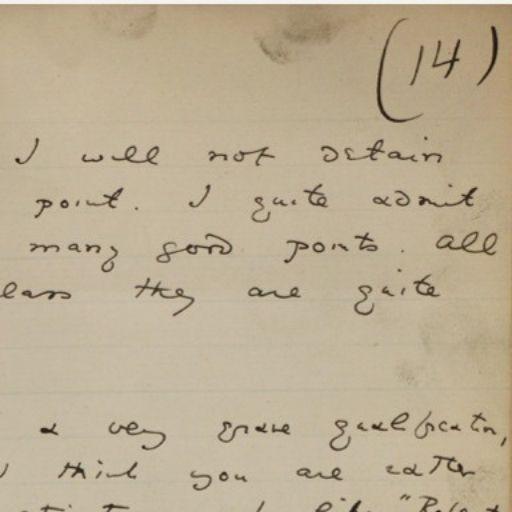 (14)
I will not detain
point. I quite admit
many good points. All
they are quite
a very grave qualification,
I think you are rather